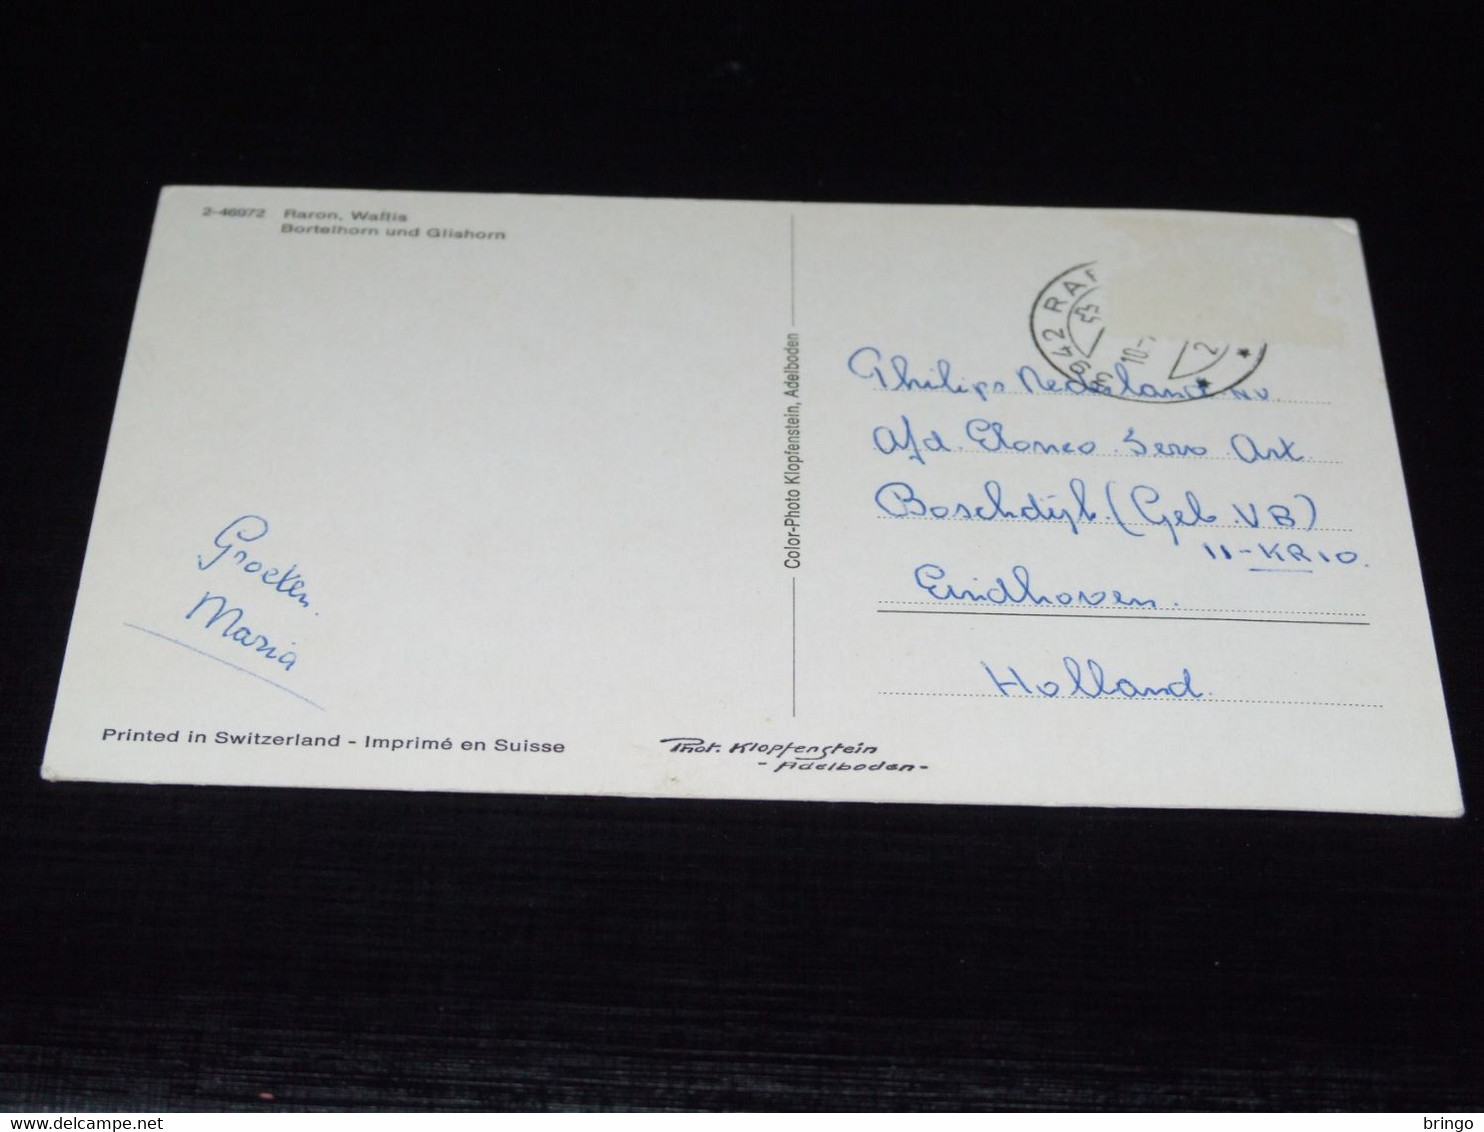 2-46972 Raron, Wallis
Bortelhorn und Glishorn
Groeten.
Maria
Printed in Switzerland - Imprimé en Suisse
Color-Photo Klopfenstein, Adelboden
Phot. Klopfenstein
- Adelboden -
3942 RAR
10-
2
Philips Nederland NV
Afd. Elonco Serv Art
Boschdijk (Geb. VB)
11-KR10.
Eindhoven.
Holland.
bringo